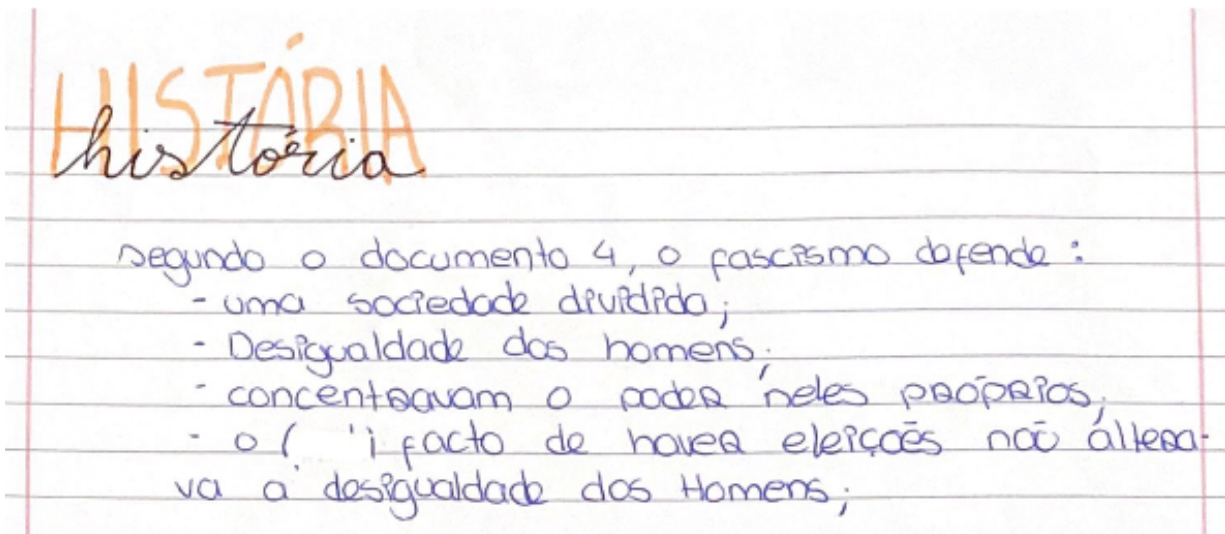 HISTÓRIA
história
segundo o documento 4, o fascismo defende:
- uma sociedade dividida;
- Desigualdade dos homens;
- concentravam o poder neles próprios;
- o facto de haver eleições não altera-
va a desigualdade dos Homens;